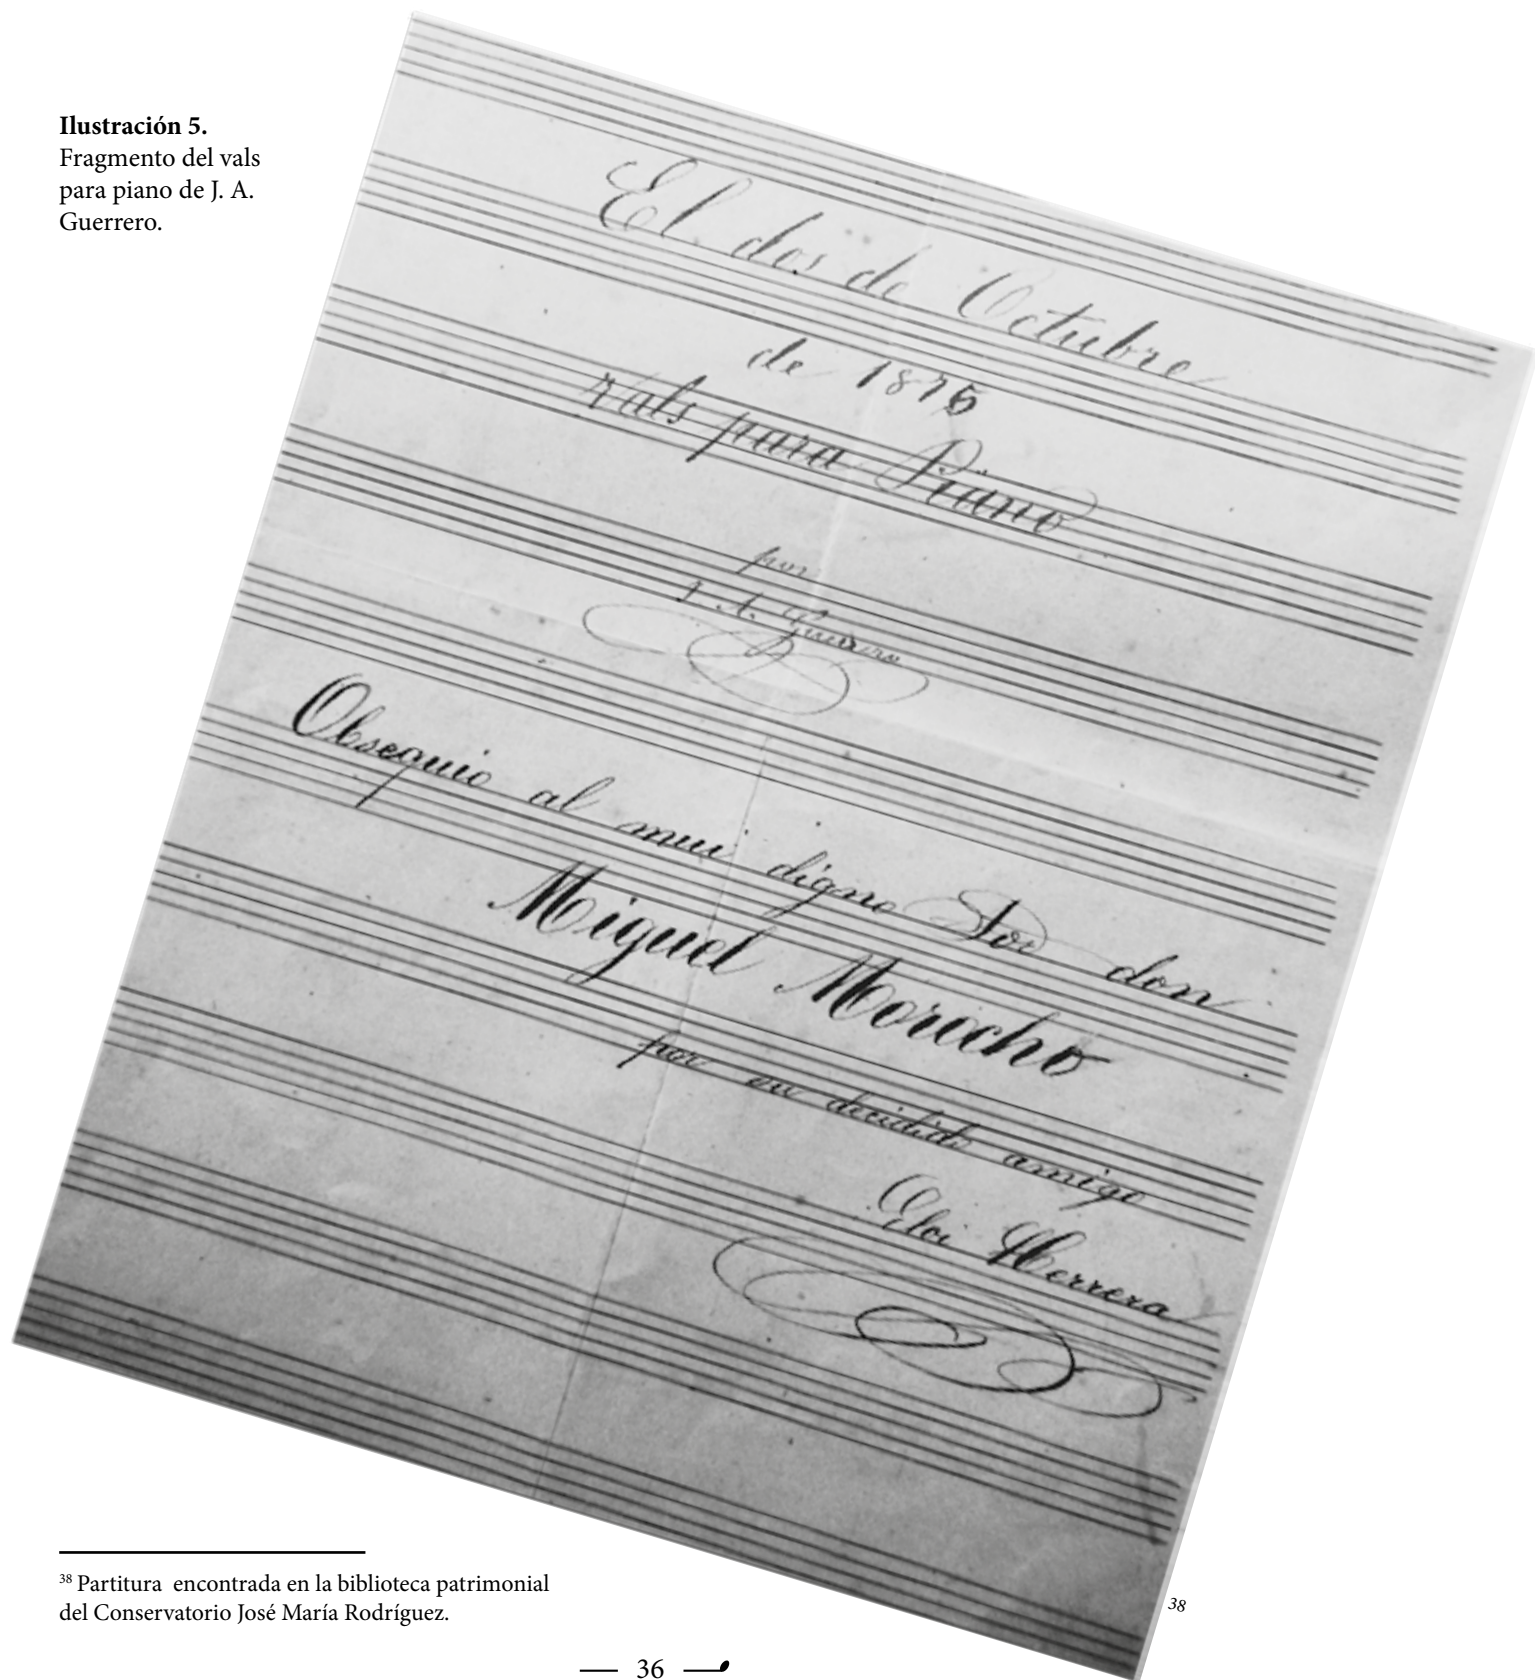 Ilustración 5.
Fragmento del vals
para piano de J. A.
Guerrero.
El dos de Octubre
de 1876
Vals para Piano
por
J. A. Guerrero
Obsequio al mui digno Sor don
Miguel Morocho
por su decidido amigo
Eloi Herrera
38
38 Partitura encontrada en la biblioteca patrimonial
del Conservatorio José María Rodríguez.
36